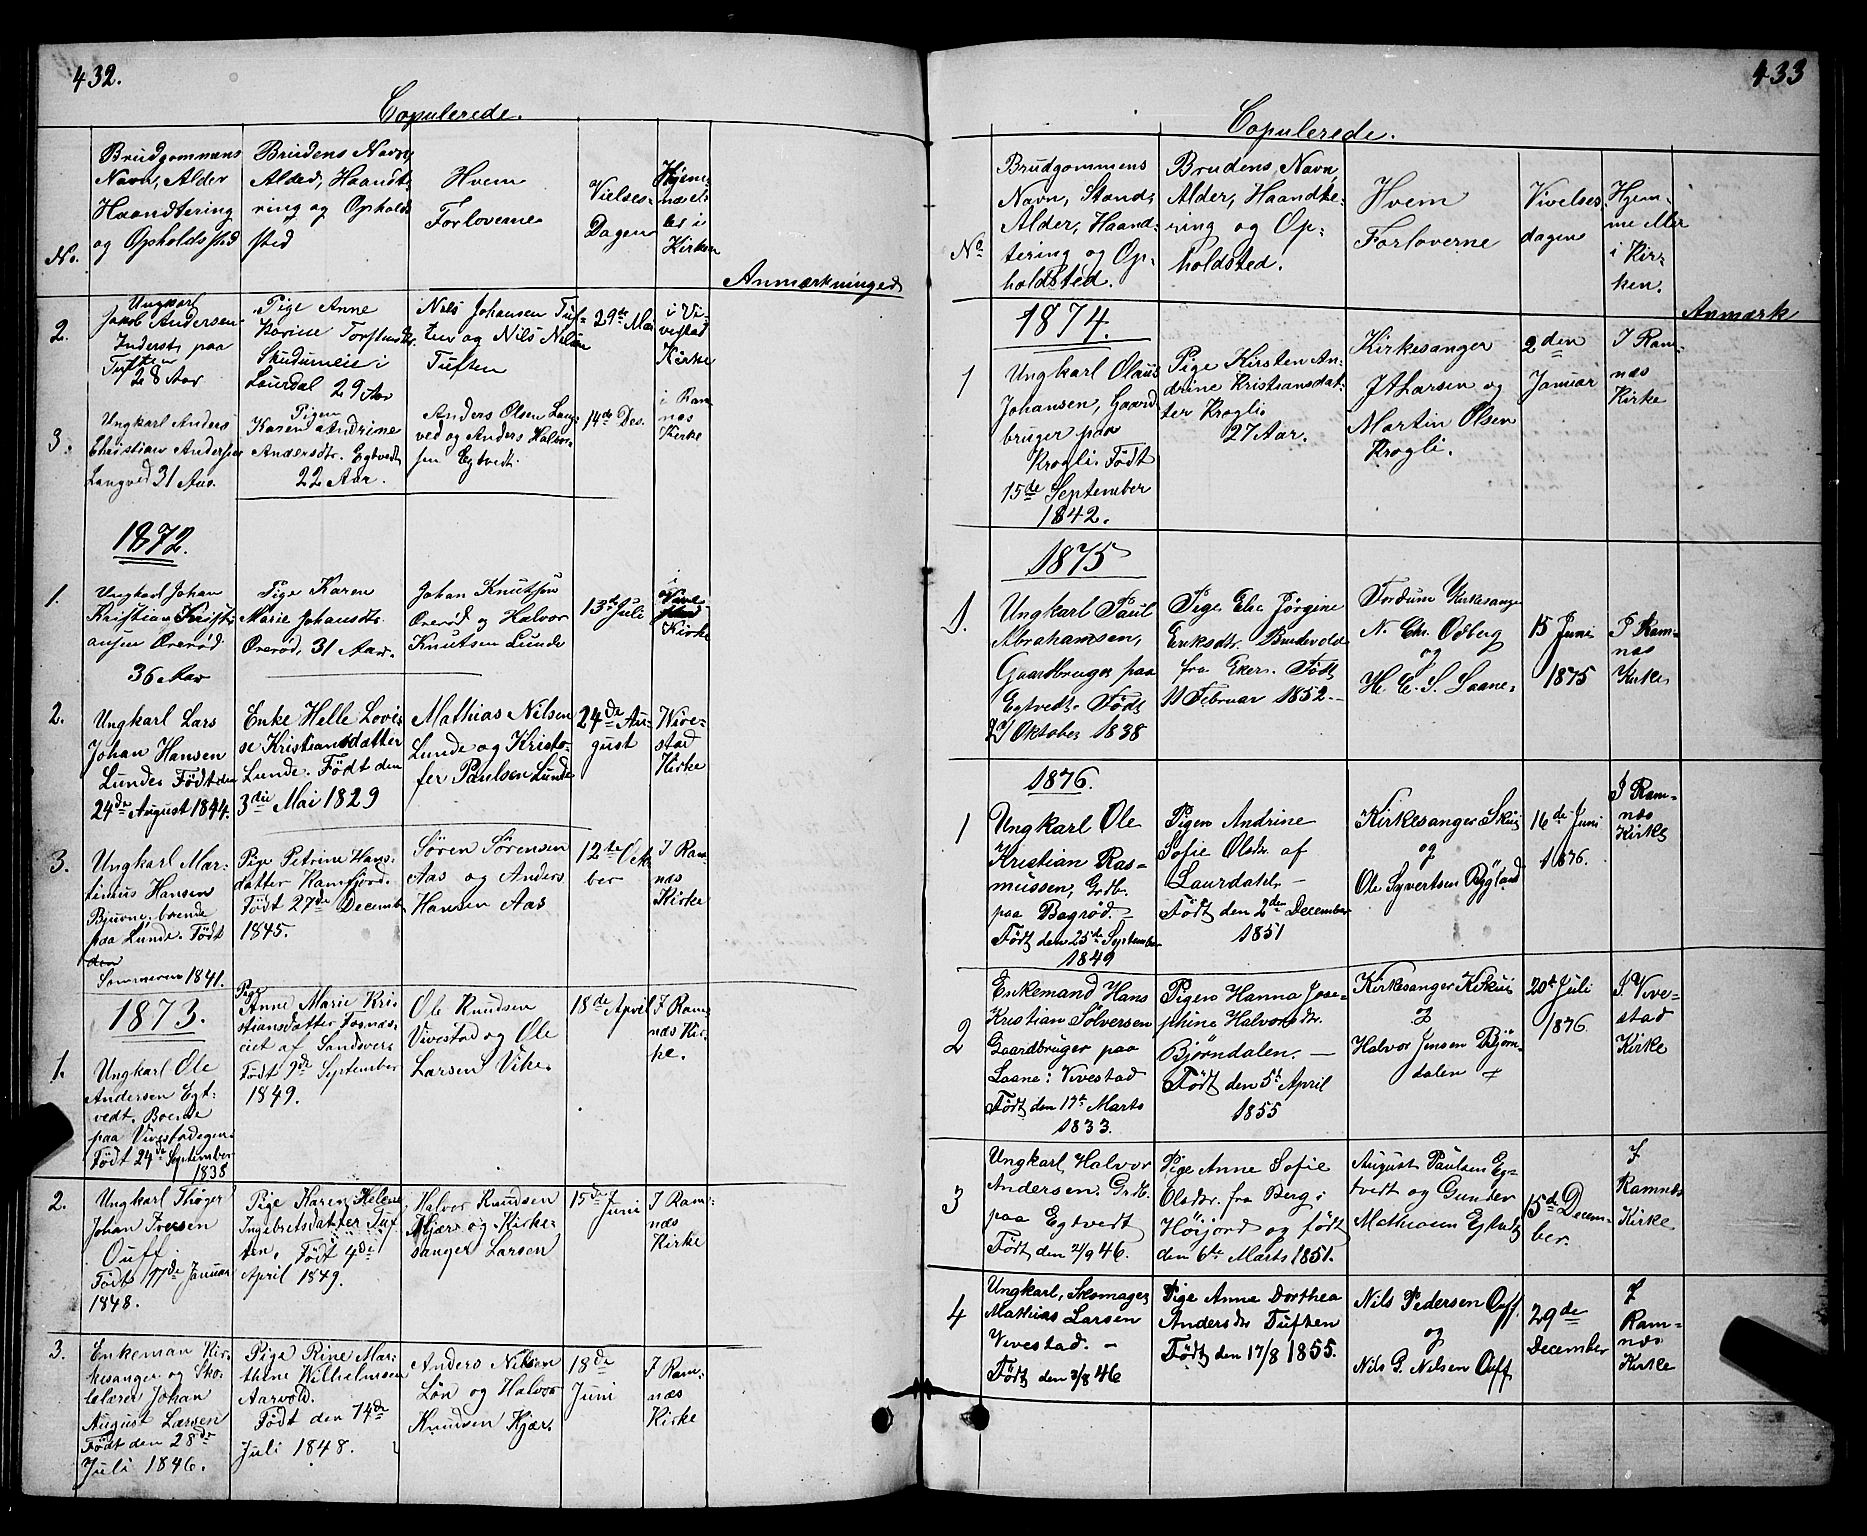 432.
Copulerede.
No.
Brudgommens
Navn, Alder
Haandtering
og Opholdssted
Brudens Navn,
Alder, Haandt
ring og Opholds
sted
Hvem
Forloverne
Vielses-
Dagen
Hjem-
me el-
ler i
Kirken
Anmærkninger
2.
Ungkarl
Jakob Andersen
Inderst paa
Tuften
28 Aar
Pige Anne
Torstensdtr.
i
Laurdal 29 Aar
Nils Johansen Tuf-
ten og Nils Nilsen
Tuften
29de Mai
i Vi-
vestad
Kirke
3.
Ungkarl Anders
Christian Andersen
Langved 31 Aar.
Pigen
Karen Andrine
Andersdtr. Egtvedt
22 Aar.
Anders Olsen Lang-
ved og Anders Halvor-
sen Egtvedt.
14de Des.
i Ram
næs
Kirke
1872.
1.
Ungkarl Johan
Kristian Kristi-
ansen Ørerød
36 Aar
Pige Karen
Marie Johansdtr.
Ørerød, 31 Aar.
Johan Knutsen
Ørerød og Halvor
Knutsen Lunde
13de Juli
i
Kirke
2.
Ungkarl Lars
Johan Hansen
Lunde. Født den
24de August 1844.
Enke Helle Lovi-
se Kristiansdatter
Lunde. Født den
3die Mai 1829
Mathias Nilsen
Lunde og Kristo-
fer Paulsen Lunde
24de Au-
gust
I Vive-
stad
Kirke
3.
Ungkarl Mar-
tinius Hansen
Bjuerne, boende
paa Lunde. Født
den
Sommeren 1841.
Pige Petrine Hans-
datter Ramfjord.
Født 27de Decemb
1845.
Søren Sørensen
Aas og Anders
Hansen Aas
12te Okto
ber
I Ram
næs
Kirke
1873.
1.
Ungkarl Ole
Andersen Egt-
vedt. Boende
paa Vivestadegen.
Født 24de September
1838
Pige
Anne Marie Kri-
stiansdatter Fosnæs-
eiet af Sandsver.
Født 9de September
1849.
Ole Knudsen
Vivestad og Ole
Larsen Vike.
18de April
I Ram-
næs Kir-
ke.
2.
Ungkarl Thøger
Johan Iversen
Ouff.
Født 17de Januar
1848.
Pige Karen Helene
Ingebretsdatter Tuf-
ten. Født 4de
April 1849.
Halvor Knudsen
Kjær og Kirke-
sanger Larsen
15de Juni
I Ram-
næs
Kirke
3.
Enkeman Kir-
kesanger og Sko-
lelærer Johan
August Larsen
Født den 28de
Juli 1846.
Pige Rine Mar-
thine Wilhelmsen
Aarvold.
Født den 14de
Juli 1848.
Anders Nilsen
Løn og Halvor
Knudsen Kjær.
18de
Juni
I Ram-
næs
Kirke
433
Copulerede.
No
Brudgommens
Navn, Stand,
Alder, Haand-
tering og Op-
holdsted.
Brudens Navn,
Alder, Haandte-
ring og Op-
holdsted.
Hvem
Forloverne
Vivelses
dagen
Hjem-
me eller
i Kir-
ken.
Anmærk
1874.
1
Ungkarl Olaus
Johansen, Gaard
bruger paa
Krogli. Født
15de September
1842.
Pige Kirsten An-
drine Kristiansdat-
ter Krogli
27 Aar.
Kirkesanger
J A Larsen og
Martin Olsen
Krogli.
2den
Januar
I Ram-
næs
Kirke
1875
1.
Ungkarl Paul
Abrahamsen,
Gaardbruger paa
Egtvedt. Født
Oktober 1838
Pige Else Jørgine
Eriksdtr.
fra Eker. Født
11 Februar 1852.-
Fordum Kirkesanger
N. Chr. Odberg
og
H. E. S. Saane.
15 Juni
1875
I Ram-
næs
Kirke
1876.
1
Ungkarl Ole
Kristian Ras-
mussen, Grdb.
paa Bagrød.-
Født den 25de September
1849
Pigen Andrine
Sofie Olsdr. af
Laurdahl. -
Født den 2den December
1851
Kirkesanger Skui
og
Ole Syvertsen Bygland
16de Juni
1876.
I Ram-
næs
Kirke
2
Enkemand Hans
Kristian Sølversen
Gaardbruger paa
Saane i Vivestad
Født den 17de Marts
1833.
Pigen Hanna Jose-
phine Halvorsdr.
Bjørndalen. -
Født den 5te April
1855
Kirkesanger
og
Halvor Jensen Bjørn-
dalen
20de Juli
1876
I Vive-
stad
Kirke
3
Ungkarl Halvor
Andersen. Grdb.
paa Egtvedt
Født den 2/9 46.
Pige Anne Sofie
Olsdr. fra Berg i
Hørjord og født
den 6te Marts 1851.
August Paulsen Eg-
tvedt og Gunder
Mathiasen Egtvedt
15de Decem-
ber.
I
Ramnæs
Kirke
4
Ungkarl, Skomager
Mathias Larsen
Vivestad. -
Født den 3/8 46
Pige Anne Dorthea
Andersdr Tuften
Født den 17/8 1855.
Nils Pedersen Ouff.
og
Nils G. Nilsen Ouff
29de
December
I
Ram-
næs
Kirke